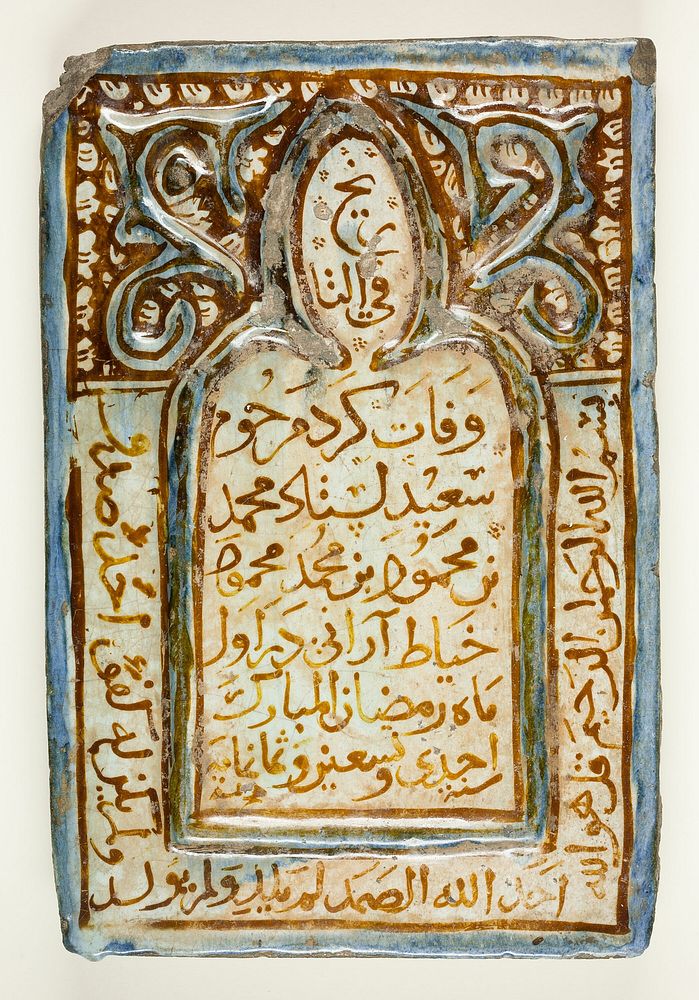 في التاريخ
وفات کرد مرحوم
سعید محمد
بن محمود بن محمد محمود
خیاط آرانی در اول
ماه رمضان المبارک
سنة احدی و تسعین و ثمانمایه
بسم الله الرحمن الرحیم قل هو الله
احد الله الصمد لم یلد ولم یولد
ولم یکن له کفوا احد صدق